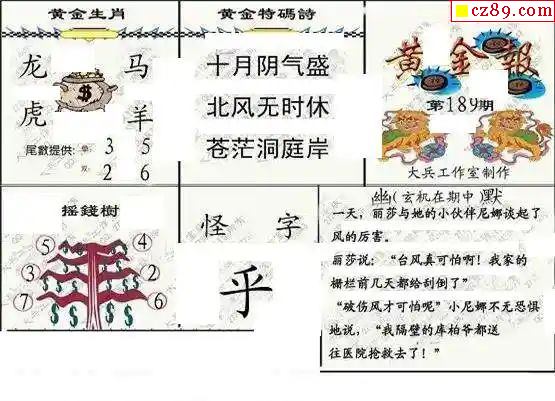 cz89.com
黄金生肖
龙 马
虎 羊
尾數提供: 单 3 5
双 2 6
黄金特碼詩
十月阴气盛
北风无时休
苍茫洞庭岸
黄金報
第189期
大兵工作室制作
摇錢樹
⑤ ④
③ ②
⑦ ⑥
怪 字
乎
幽(玄机在期中)默
一天，丽莎与她的小伙伴尼娜谈起了
风的厉害。
丽莎说："台风真可怕啊！我家的
栅栏前几天都给刮倒了"
"破伤风才可怕呢"小尼娜不无恐惧
地说，"我隔壁的库柏爷都送
往医院抢救去了！"